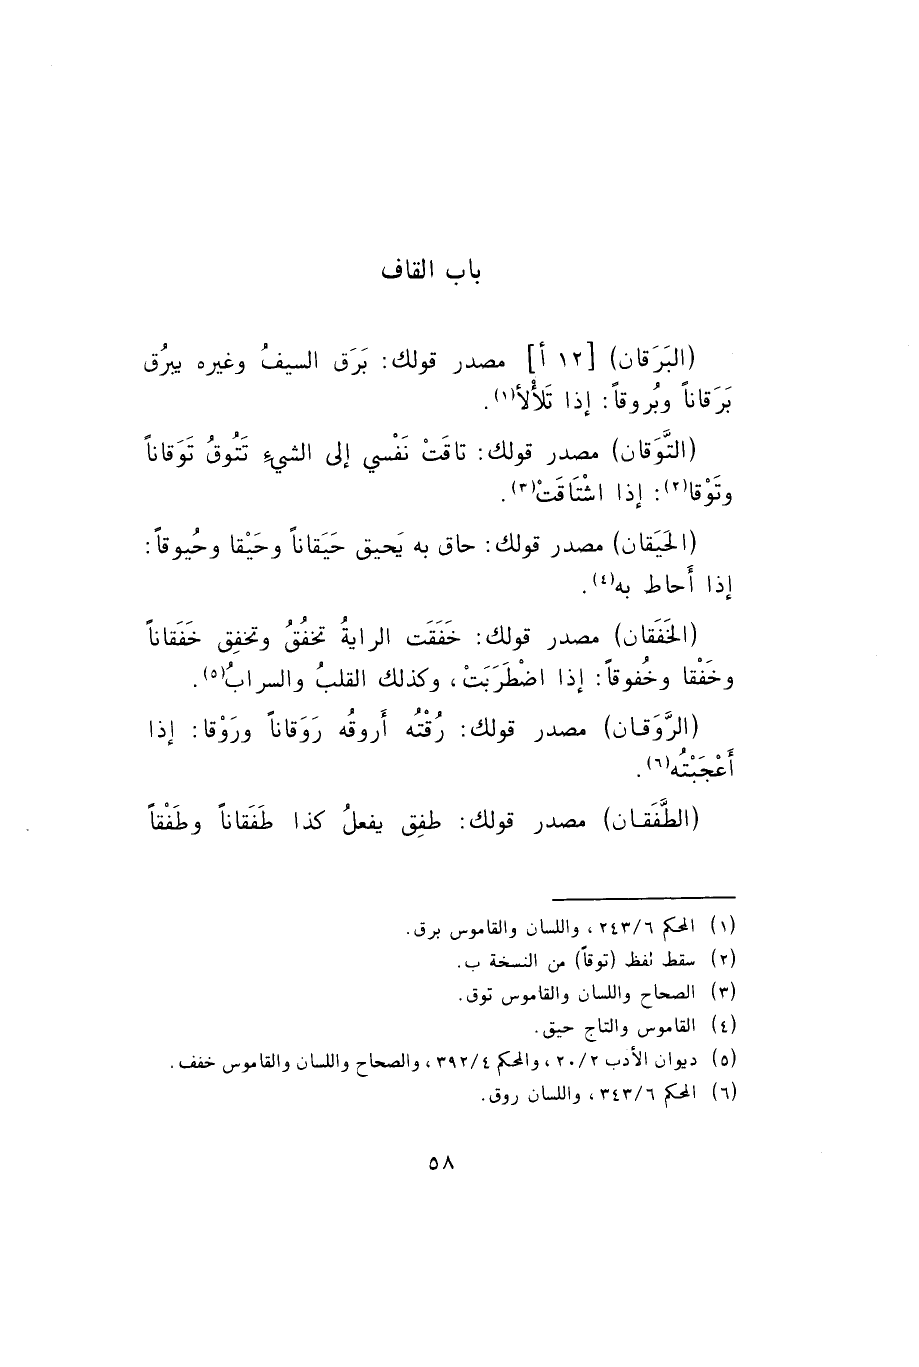 باب القاف
(البَرَقان) [١٢ أ] مصدر قولك: بَرَق السيفُ وغيره يبرُق
بَرَقاناً وبُروقاً: إذا تَلأْلأ(١).
(التَّوَقان) مصدر قولك: تاقَتْ نَفْسي إلى الشيءِ تَتُوقُ تَوَقاناً
وتَوْقا(٢): إذا اشْتَاقَتْ(٣).
(الحَيَقان) مصدر قولك: حاق به يَحيق حَيَقاناً وحَيْقا وحُيوقاً:
إذا أَحاط به(٤).
(الخَفَقان) مصدر قولك: خَفَقَت الرايةُ تخفُقُ وتخفِق خَفَقاناً
وخَفْقا وخُفوقاً: إذا اضْطَرَبَتْ، وكذلك القلبُ والسرابُ(٥).
(الرَّوَقان) مصدر قولك: رُقْتُه أَروقُه رَوَقاناً ورَوْقا: إذا
أَعْجَبْتُه(٦).
(الطَّفَقان) مصدر قولك: طفِق يفعلُ كذا طَفَقاناً وطَفْقاً
(١) المحكم ٢٤٣/٦، واللسان والقاموس برق.
(٢) سقط لفظ (توقاً) من النسخة ب.
(٣) الصحاح واللسان والقاموس توق.
(٤) القاموس والتاج حيق.
(٥) ديوان الأدب ٢٠/٢، والمحكم ٣٩٢/٤، والصحاح واللسان والقاموس خفف.
(٦) المحكم ٣٤٣/٦، واللسان روق.
٥٨